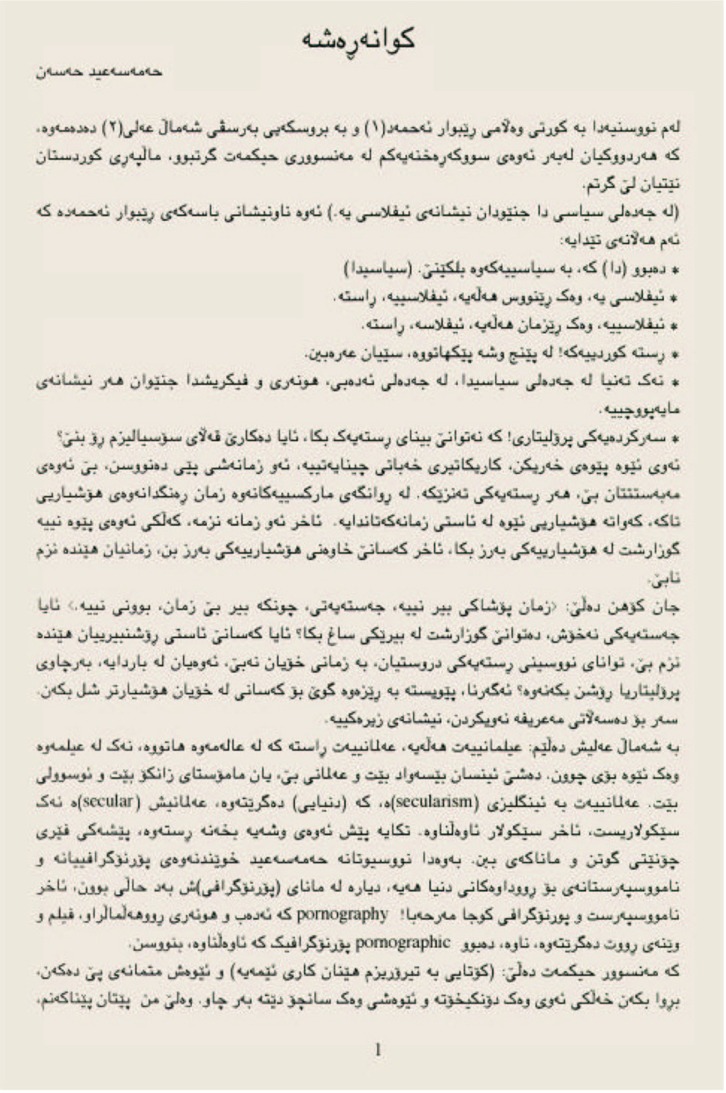 کوانەڕەشە
حەمەسەعید حەسەن
لەم نووسنیەدا بە کورتی وەڵامی ڕێبوار ئەحمەد(١) و بە بروسکەیی بەرسڤی شەماڵ عەلی(٢) دەدەمەوە،
کە هەردووکیان لەبەر ئەوەی سووکەڕەخنەیەکم لە مەنسووری حیکمەت گرتبوو، ماڵپەڕی کوردستان
نێتیان لێ گرتم.
(لە جەدەلی سیاسی دا جنێودان نیشانەی ئیفلاسی یە.) ئەوە ناونیشانی باسەکەی ڕێبوار ئەحمەدە کە
ئەم هەڵانەی تێدایە:
* دەبوو (دا) کە، بە سیاسییەکەوە بلکێنێ. (سیاسیدا)
* ئیفلاسی یە، وەک ڕێنووس هەڵەیە، ئیفلاسییە، ڕاستە.
* ئیفلاسییە، وەک ڕێزمان هەڵەیە، ئیفلاسە، ڕاستە.
* ڕستە کوردییەکە! لە پێنج وشە پێکهاتووە، سێیان عەرەبین.
* نەک تەنیا لە جەدەلی سیاسیدا، لە جەدەلی ئەدەبی، هونەری و فیکریشدا جنێوان هەر نیشانەی
مایەپووچییە.
* سەرکردەیەکی پرۆلیتاری! کە نەتوانێ بینای ڕستەیەک بکا، ئایا دەکارێ قەڵای سۆسیالیزم ڕۆ بنێ؟
ئەوی ئێوە پێوەی خەریکن، کاریکاتیری خەباتی چینایەتییە، ئەو زمانەشی پێی دەنووسن، بێ ئەوەی
مەبەستتتان بێ، هەر ڕستەیەکی تەنزێکە. لە ڕوانگەی مارکسییەکانەوە زمان ڕەنگدانەوەی هۆشیاریی
تاکە، کەواتە هۆشیاریی ئێوە لە ئاستی زمانەکەتاندایە. ئاخر ئەو زمانە نزمە، کەڵکی ئەوەی پێوە نییە
گوزارشت لە هۆشیارییەکی بەرز بکا، ئاخر کەسانێ خاوەنی هۆشیارییەکی بەرز بن، زمانیان هێندە نزم
نابێ.
جان کۆهن دەڵێ: ‹زمان پۆشاکی بیر نییە، جەستەیەتی، چونکە بیر بێ زمان، بوونی نییە.› ئایا
جەستەیەکی نەخۆش، دەتوانێ گوزارشت لە بیرێکی ساغ بکا؟ ئایا کەسانێ ئاستی ڕۆشنبیرییان هێندە
نزم بێ، توانای نووسینی ڕستەیەکی دروستیان، بە زمانی خۆیان نەبێ، ئەوەیان لە باردایە، بەرچاوی
پرۆلیتاریا ڕۆشن بکەنەوە؟ ئەگەرنا، پێویستە بە ڕێزەوە گوێ بۆ کەسانی لە خۆیان هۆشیارتر شل بکەن.
سەر بۆ دەسەڵاتی مەعریفە نەویکردن، نیشانەی زیرەکییە.
بە شەماڵ عەلیش دەڵێم: عیلمانییەت هەڵەیە، عەلمانییەت ڕاستە کە لە عالەمەوە هاتووە، نەک لە عیلمەوە
وەک ئێوە بۆی چوون. دەشێ ئینسان بێسەواد بێت و عەلمانی بێ، یان مامۆستای زانکۆ بێت و ئوسوولی
بێت. عەلمانییەت بە ئینگلیزی (secularism)ە، کە (دنیایی) دەگرێتەوە، عەلمانیش (secular)ە نەک
سێکولاریست، ئاخر سێکولار ئاوەڵناوە. تکایە پێش ئەوەی وشەیە بخەنە ڕستەوە، پێشەکی فێری
چۆنێتی گوتن و ماناکەی بین. بەوەدا نووسیوتانە حەمەسەعید خوێندنەوەی پۆرنۆگرافییانە و
نامووسپەرستانەی بۆ ڕووداوەکانی دنیا هەیە، دیارە لە مانای (پۆرنۆگرافی)ش بەد حاڵی بوون، ئاخر
نامووسپەرست و پورنۆگرافی کوجا مەرحەبا! pornography کە ئەدەب و هونەری ڕووهەڵماڵراو، فیلم و
وێنەی ڕووت دەگرێتەوە، ناوە، دەبوو pornographic پۆرنۆگرافیک کە ئاوەڵناوە، بنووسن.
کە مەنسوور حیکمەت دەڵێ: (کۆتایی بە تیرۆریزم هێنان کاری ئێمەیە) و ئێوەش متمانەی پێ دەکەن،
بڕوا بکەن خەڵکی ئەوی وەک دۆنکیخۆتە و ئێوەشی وەک سانچۆ دێتە بەر چاو. وەلێ من پێتان پێناکەنم،
1